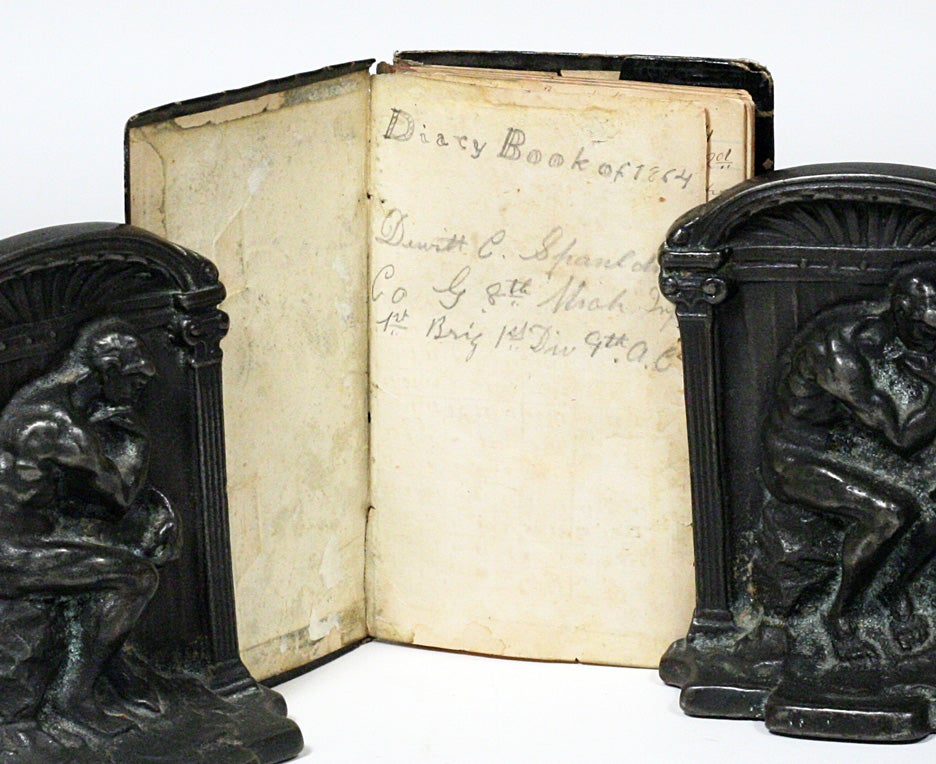 Diary Book of 1864
Dewitt C. Spauldi
Co G 8th Mich Inf
1st Brig 1st Div 9th. A. C